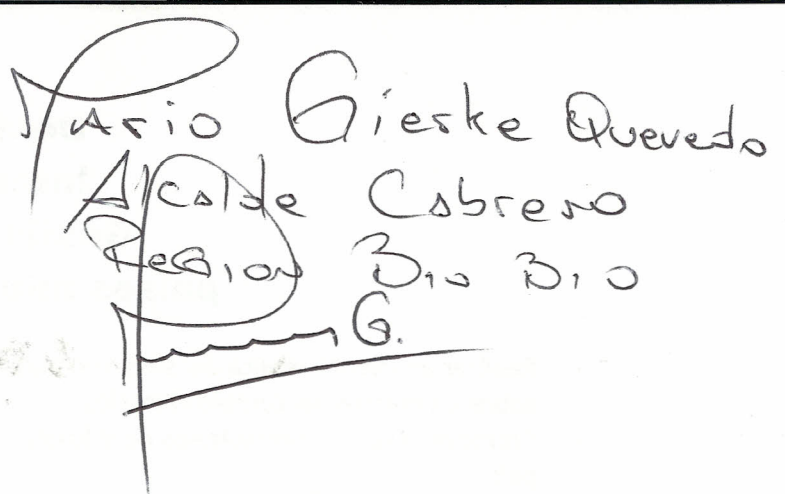 Mario Gierke Quevedo
Alcalde Cabrero
Region Bio Bio
G.